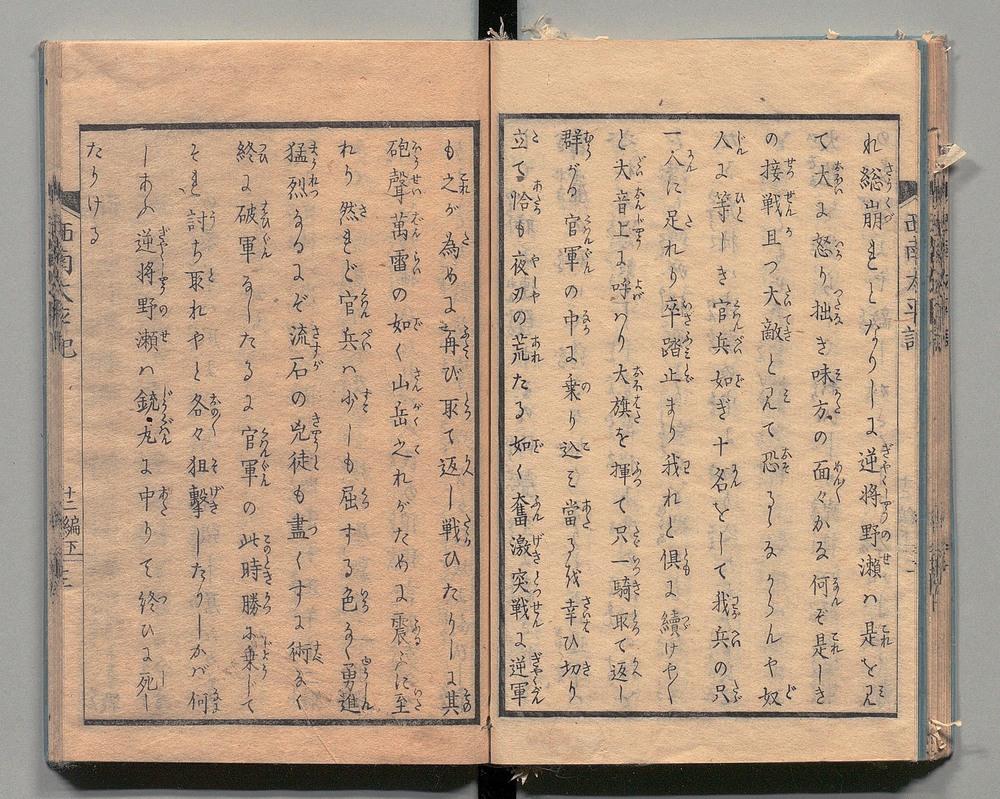 れ総崩れとなりしに逆将野瀬ハ是を見
て大に怒り拙き味方の面々かな何ぞ是しき
の接戦且つ大敵と見て恐るゝならんや奴
人に等しき官兵如き十名をして我兵の只
一人に足れり卒踏止まり我れと倶に續けやく
と大音上に呼ハり大旗を揮て只一騎取て返し
群がる官軍の中に乗り込ミ當るを幸ひ切り
立て恰も夜刃の荒たる如く奮激突戦に逆軍
西南太平記
十二編下
も之が為めに再び取て返し戦ひたりしに其
砲聲萬雷の如く山岳之れがために震ふに至
れり然れど官兵ハ少しも屈する色なく勇進
猛烈なるにぞ流石の兇徒も盡くすに術なく
終に破軍なしたるに官軍の此時勝に乗して
それ討ち取れやと各々狙擊したりしかバ何
しあふ逆将野瀬ハ銃丸に中りて終ひに死し
たりける
西南太平記
十二編下 三